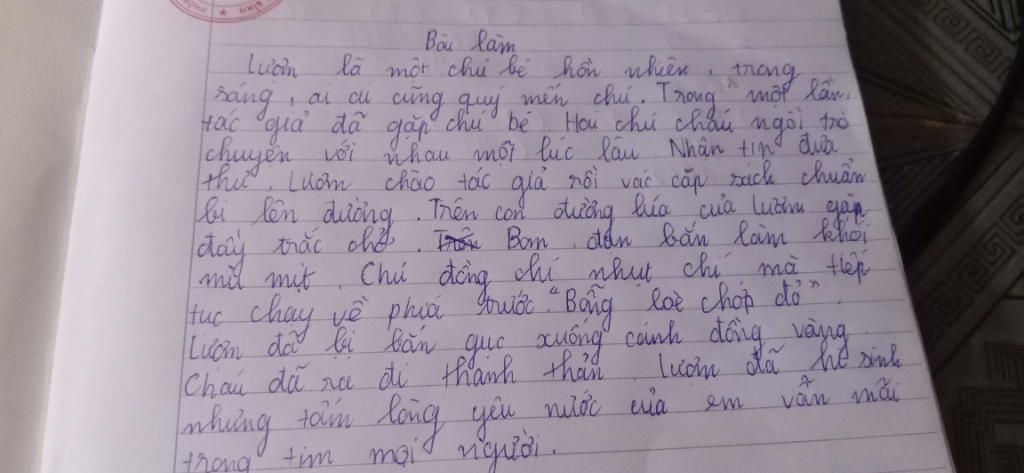 Bài làm
Lượm là một chú bé hồn nhiên, trong
sáng, ai cũ cũng quý mến chú. Trong một lần,
tác giả đã gặp chú bé. Hai chú cháu ngồi trò
chuyện với nhau một lúc lâu. Nhận tin đưa
thư, Lượm chào tác giả rồi vác cặp xách chuẩn
bị lên đường. Trên con đường lúa của lượm gặp
đầy trắc chở. Bom, đạn bắn làm khói
mù mịt. Chú đồng chí nhụt chí mà tiếp
tục chạy về phiá trước. "Bỗng loè chớp đỏ".
Lượm đã bị bắn gục xuống cánh đồng vàng.
Cháu đã ra đi thanh thản. Lượm đã hi sinh
nhưng tấm lòng yêu nước của em vẫn mãi
trong tim mọi người.